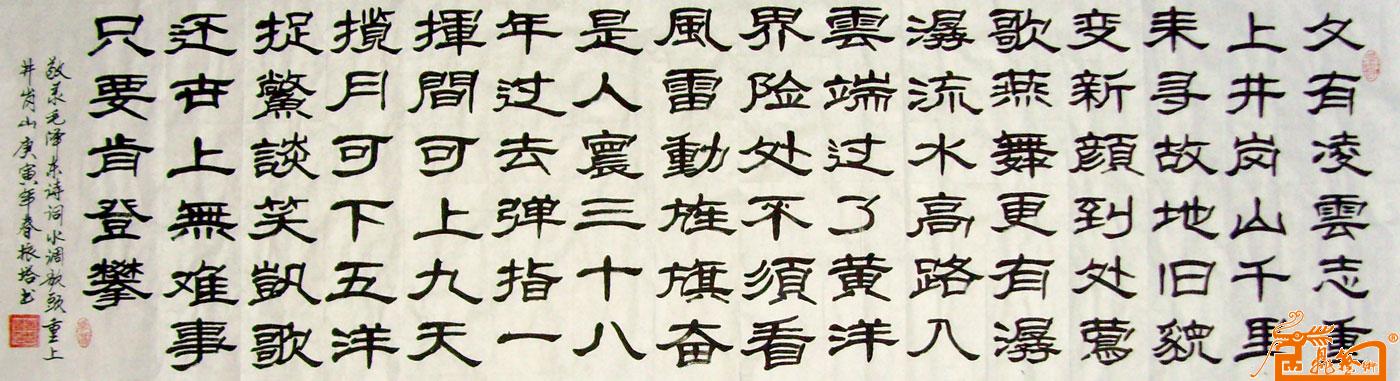 久有凌雲志重
上井岗山千里
来寻故地旧貌
变新顔到处鶯
歌燕舞更有潺
潺流水高路入
雲端过了黄洋
界险处不須看
風雷動旌旗奋
是人寰三十八
年过去弹指一
揮間可上九天
揽月可下五洋
捉鱉談笑凱歌
还世上無难事
只要肯登攀
敬录毛泽东诗词水调歌頭重上
井岗山庚寅年春振塔书